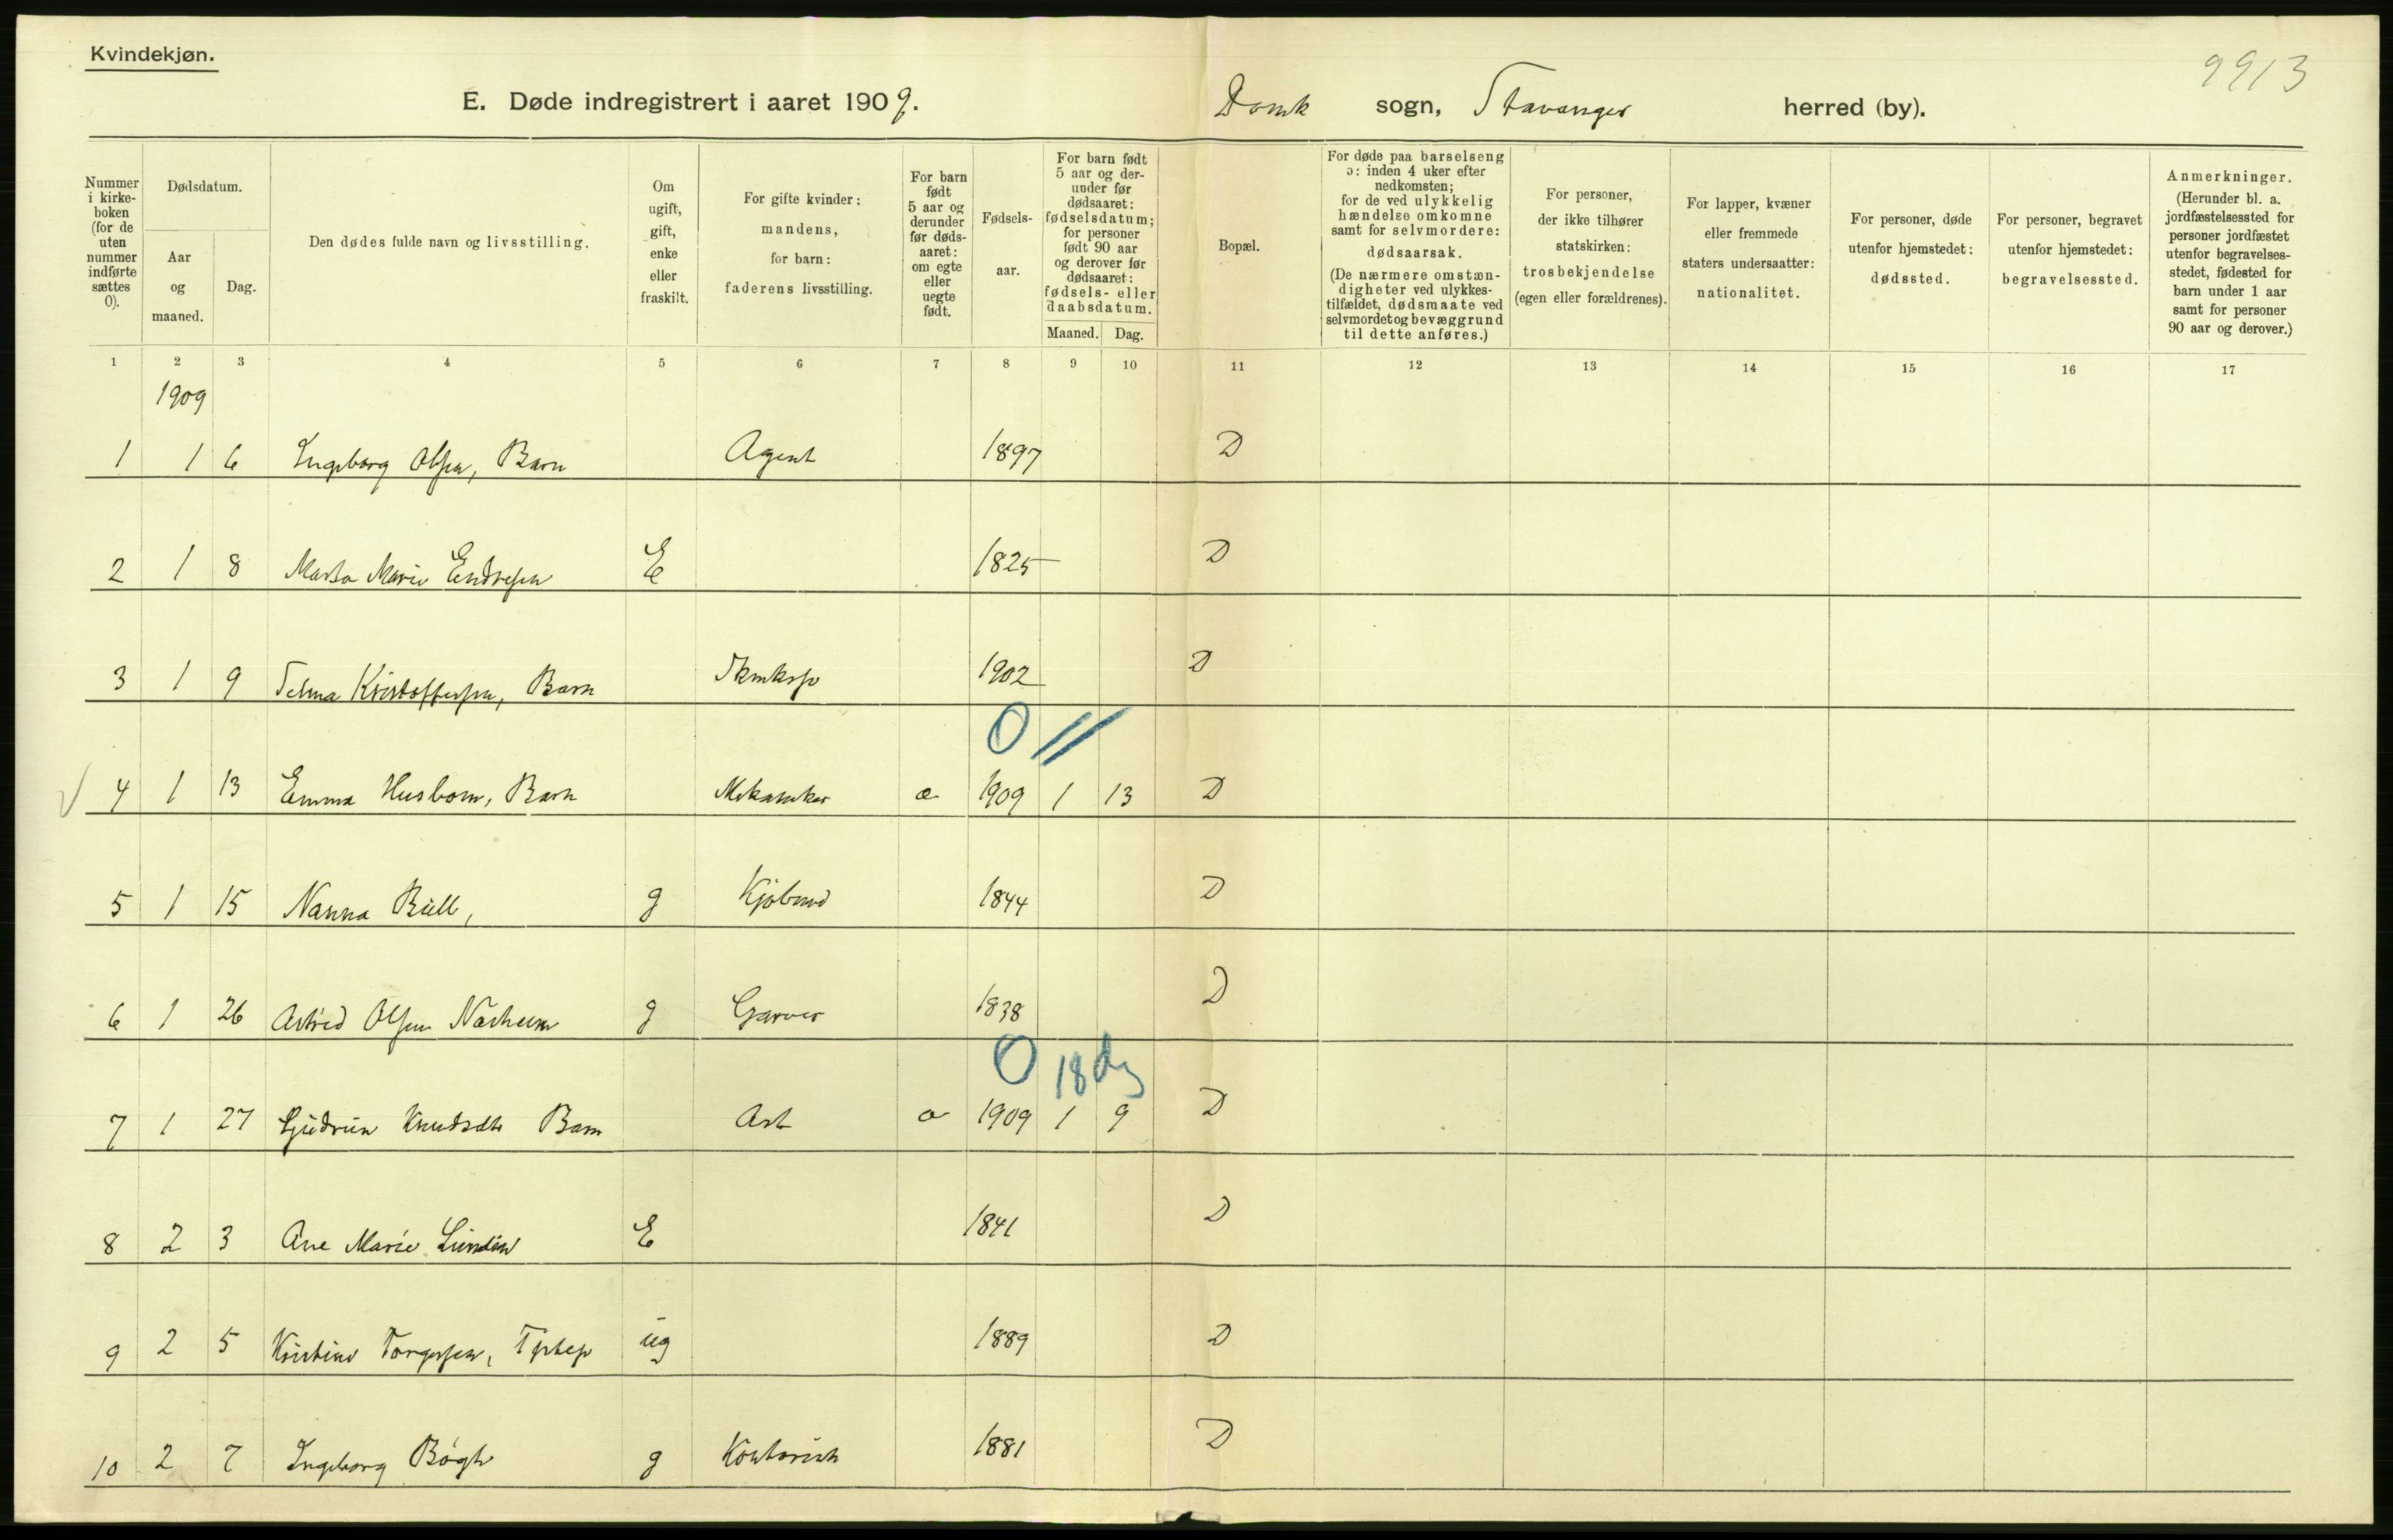 Kvindekjøn.
9913
E. Døde indregistrert i aaret 1909. Domk sogn, Stavanger herred (by).
Nummer i kirkeboken (for de uten nummer indførte sættes 0).
Dødsdatum.
Aar og maaned.
Dag.
Den dødes fulde navn og livsstilling.
Om ugift, gift, enke eller fraskilt.
For gifte kvinder: mandens, for barn: faderens livsstilling.
For barn født 5 aar og derunder før dødsaaret: om egte eller uegte født.
Fødselsaar.
For barn født 5 aar og derunder før dødsaaret: fødselsdatum; for personer født 90 aar og derover før dødsaaret: fødsels- eller daabsdatum.
Maaned. Dag.
Bopæl.
For døde paa barselseng ɔ: inden 4 uker efter nedkomsten; for de ved ulykkelig hændelse omkomne samt for selvmordere: dødsaarsak. (De nærmere omstændigheter ved ulykkestilfældet, dødsmaate ved selvmordet og bevæggrund til dette anføres.)
For personer, der ikke tilhører statskirken: trosbekjendelse (egen eller forældrenes).
For lapper, kvæner eller fremmede staters undersaatter: nationalitet.
For personer, døde utenfor hjemstedet: dødssted.
For personer, begravet utenfor hjemstedet: begravelsessted.
Anmerkninger. (Herunder bl. a. jordfæstelsessted for personer jordfæstet utenfor begravelsesstedet, fødested for barn under 1 aar samt for personer 90 aar og derover.)
1 2 3 4 5 6 7 8 9 10 11 12 13 14 15 16 17
1909
1 1 6 Ingeborg Olsen, Barn Agent 1897 D
2 1 8 Marta Marie Endresen E 1825 D
3 1 9 Selma Kristoffersen, Barn 1902 D
0 //
4 1 13 Emma Husbom, Barn Mekaniker æ 1909 1 13 D
5 1 15 Nanna Bull, g Kjøbmd 1844 D
6 1 26 Astrid Olsen Nærheim g Garver 1838 D
0 18 dg
7 1 27 Gudrun Knudsdtr Barn Arb æ 1909 1 9 D
8 2 3 Ane Marie Lundin E 1841 D
9 2 5 Kristine Torgersen, Tjstep ug 1889 D
10 2 7 Ingeborg Bøgh g Kontorist 1881 D